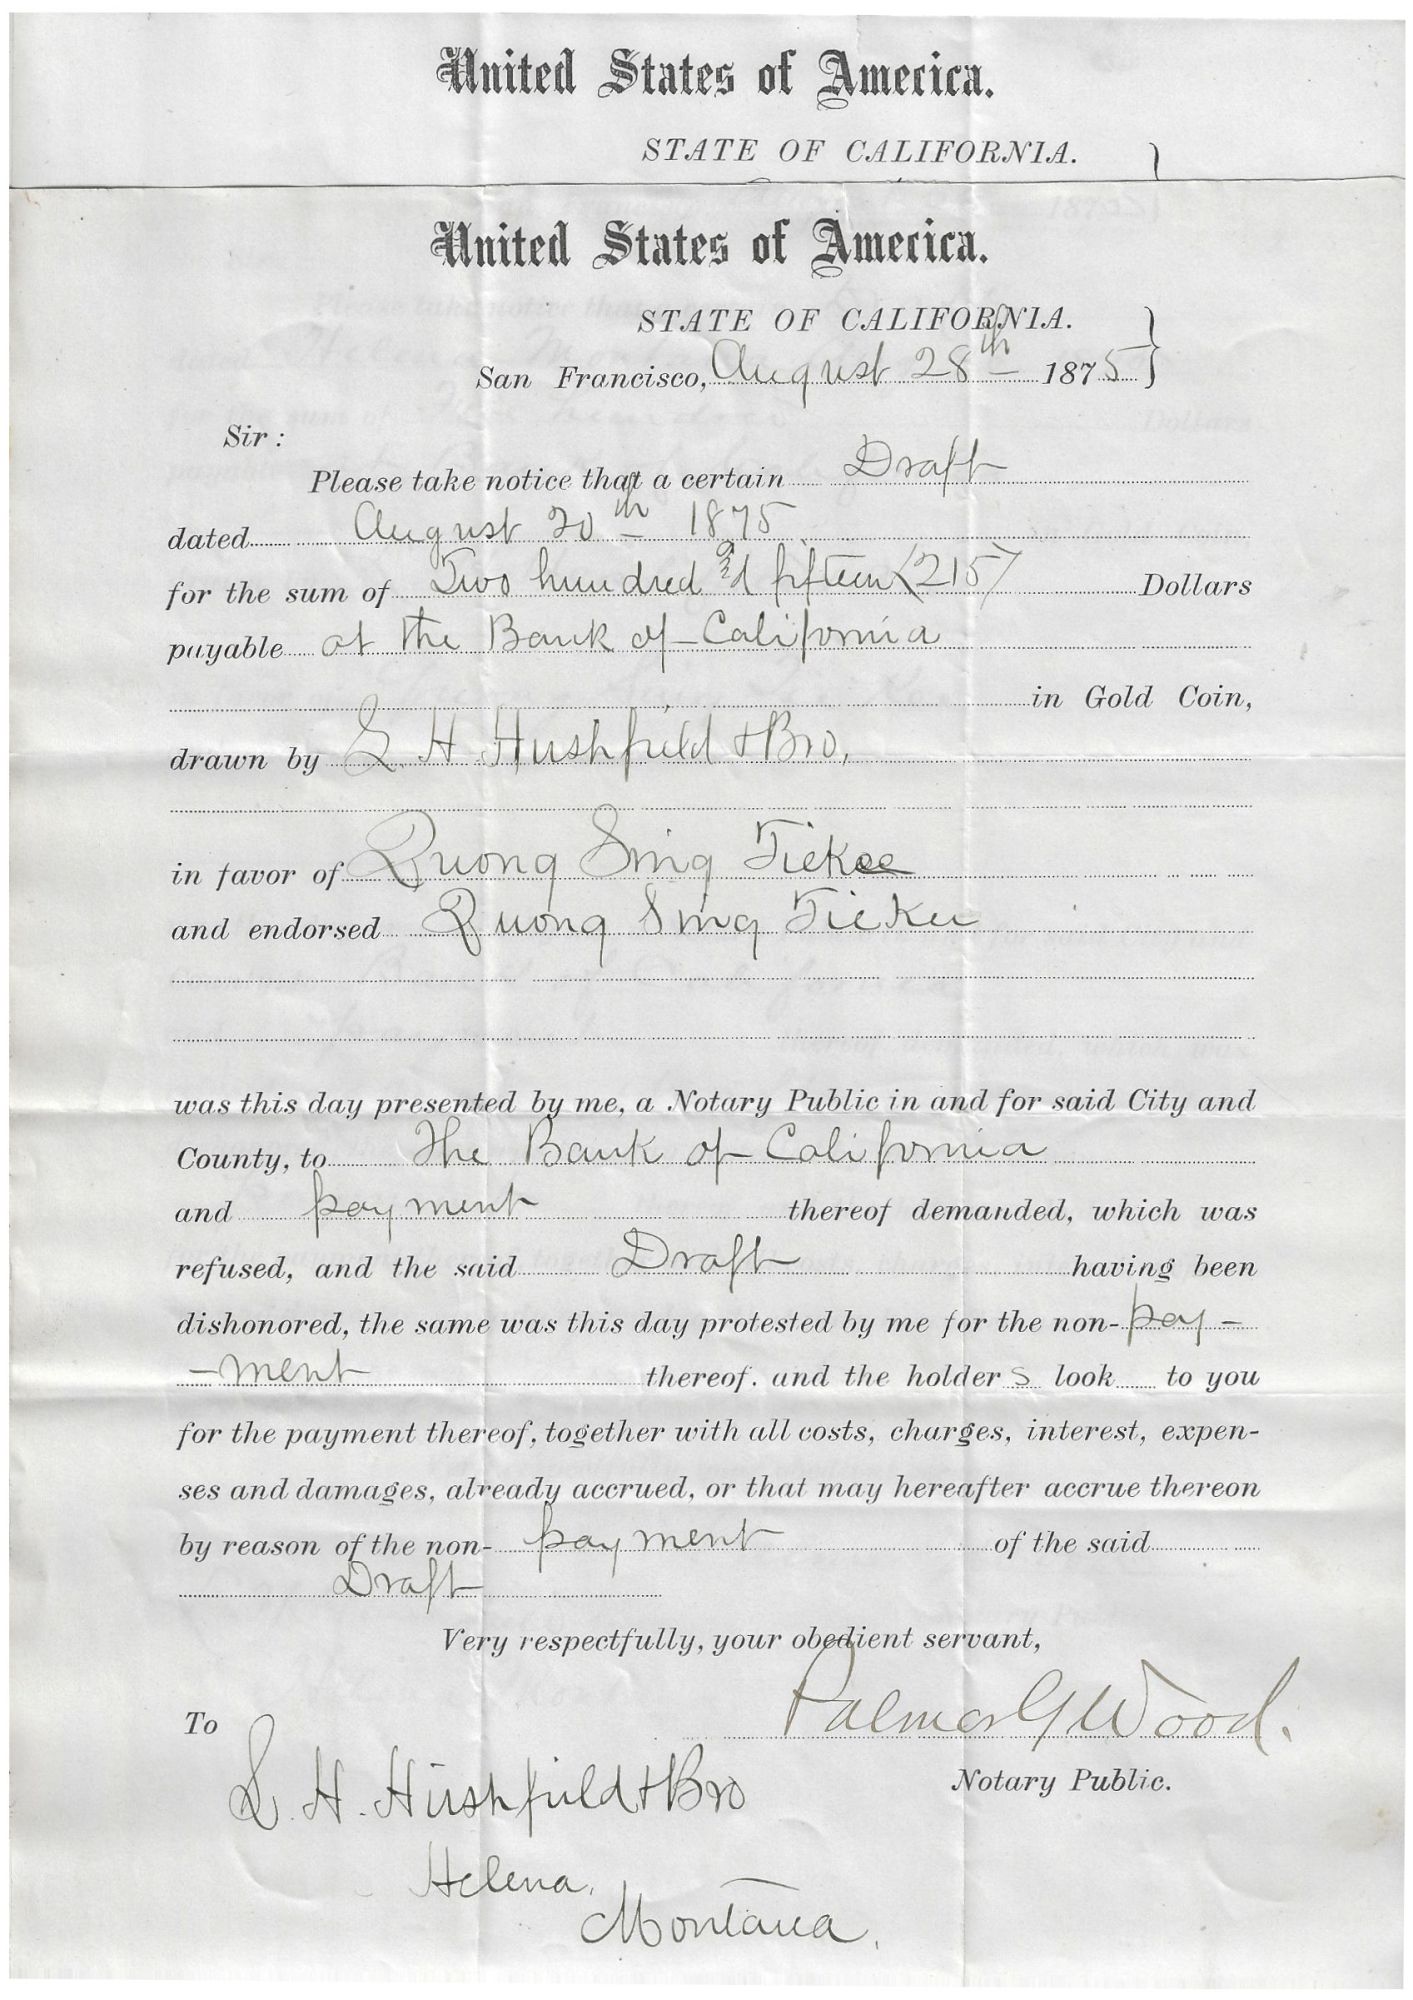 United States of America.
STATE OF CALIFORNIA.
United States of America.
STATE OF CALIFORNIA.
San Francisco, August 28th 1875
Sir:
Please take notice that a certain Draft
dated August 20th 1875
for the sum of Two hundred & fifteen (215) Dollars
payable at the Bank of California
in Gold Coin,
drawn by L. H. Hirshfield & Bro.
in favor of Quong Sing Tickee
and endorsed Quong Sing Tickee
was this day presented by me, a Notary Public in and for said City and
County, to The Bank of California
and payment thereof demanded, which was
refused, and the said Draft having been
dishonored, the same was this day protested by me for the non-pay-
-ment thereof. and the holders look to you
for the payment thereof, together with all costs, charges, interest, expen-
ses and damages, already accrued, or that may hereafter accrue thereon
by reason of the non-payment of the said
Draft
Very respectfully, your obedient servant,
Palmer G Wood.
To
Notary Public.
L. H. Hirshfield & Bro
Helena.
Montana.